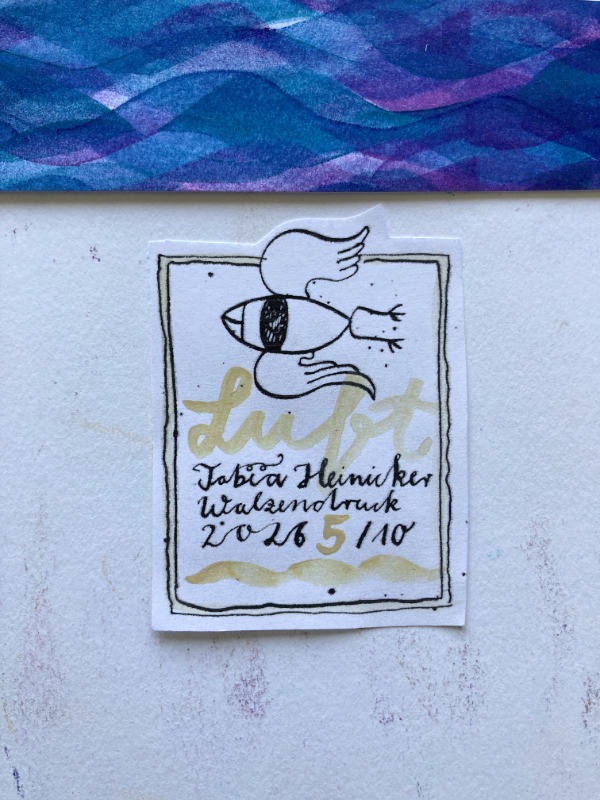 Luft.
Tobia Heinicker
Walzendruck
2026 5/10